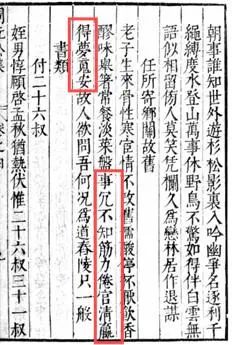 朝事誰知世外遊杉松影裏入吟幽爭名逐利千
繩縛度水登山萬事休野鳥不驚如得伴白雲無
語似相留傍人莫笑凭欄久為戀林居作退謀
任所寄鄉關故舊
老子生來骨性寒宦情不改舊儒酸停杯厭飲香
醪味舉箸常餐淡菜盤事冗不知筋力倦官清贏
得夢䰟安故人欲問吾何況為道舂陵只一般
書類
付二十六叔
姪男惇頤啓孟秋猶熱伏惟二十六叔三十一叔